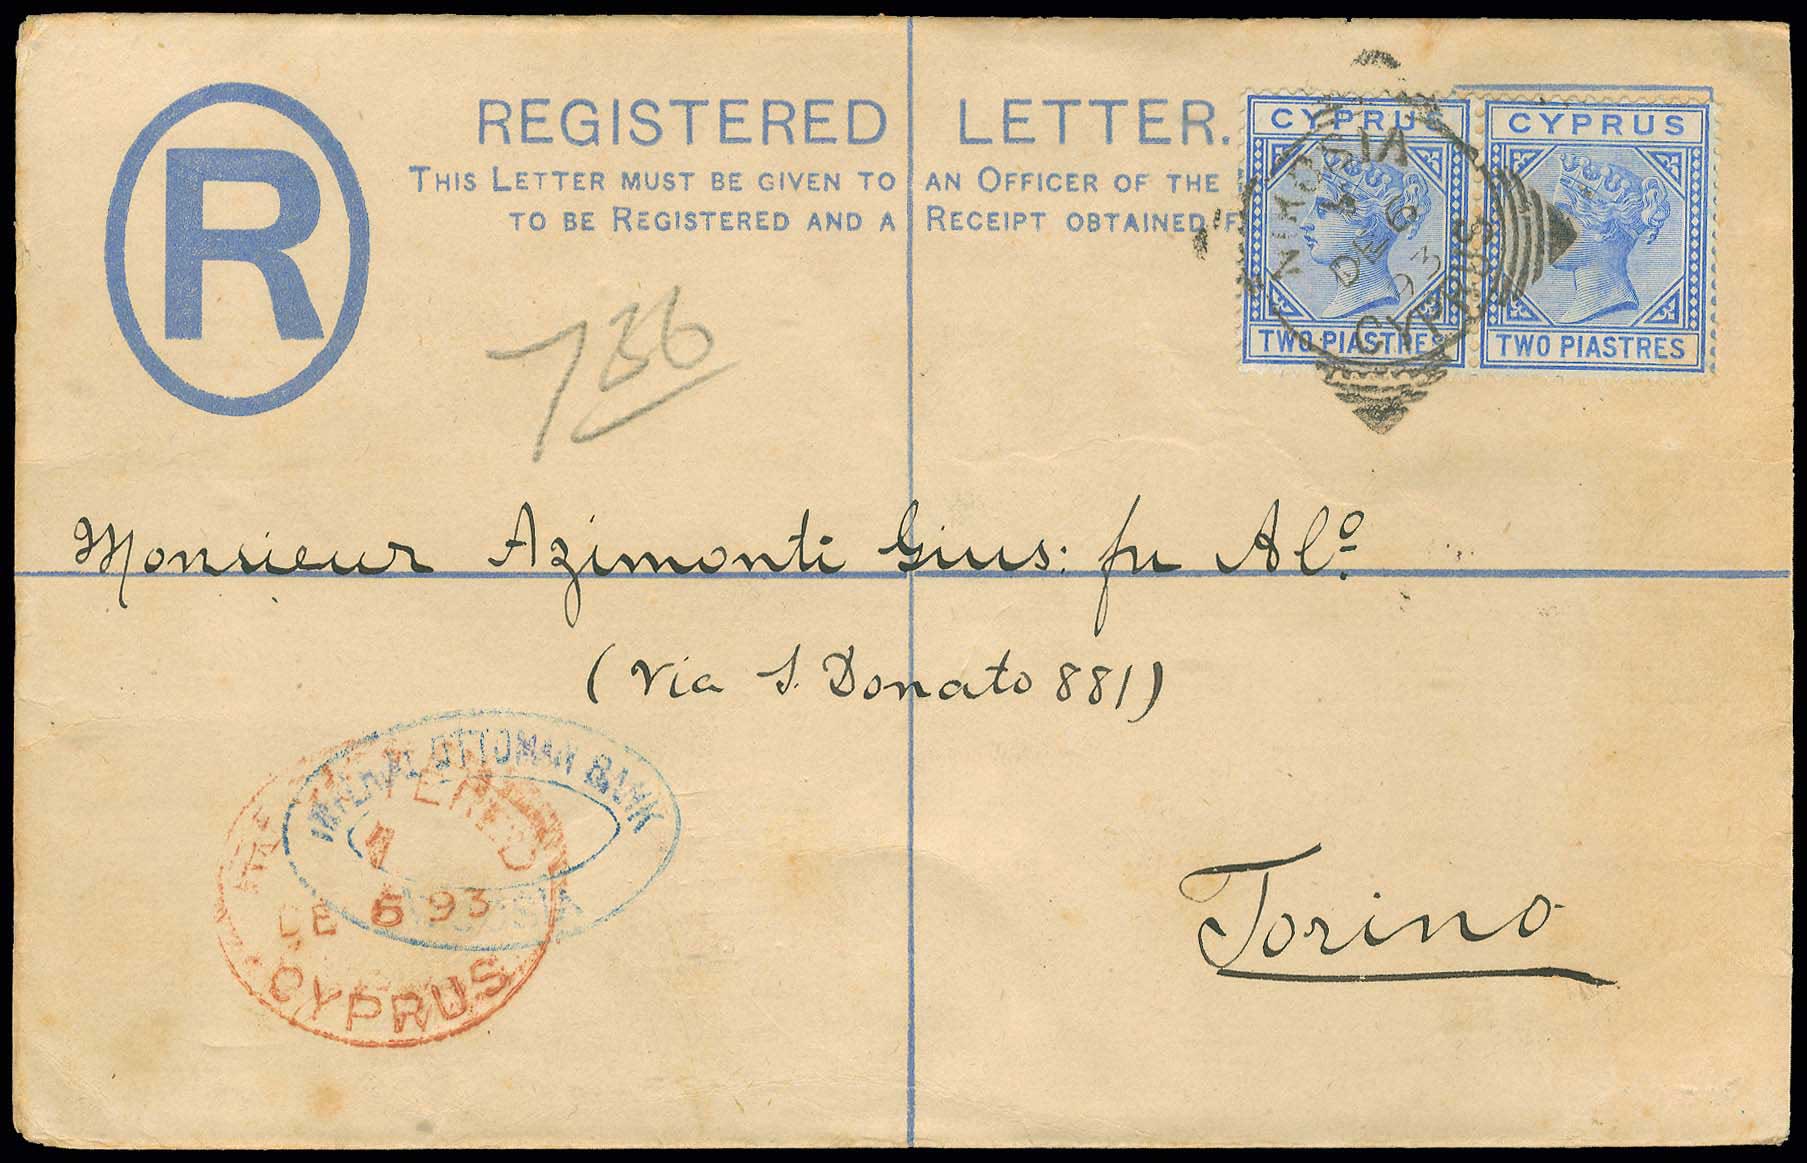 R
REGISTERED LETTER.
THIS LETTER MUST BE GIVEN TO AN OFFICER OF THE
TO BE REGISTERED AND A RECEIPT OBTAINED F
CYPRUS
TWO PIASTRES
CYPRUS
TWO PIASTRES
DE 6
93
CYPRUS
736
Monsieur Azimonti Gius: fu Alo.
(Via S. Donato 881)
Torino
IMPERIAL OTTOMAN BANK
REGISTERED
DE 6 93
CYPRUS